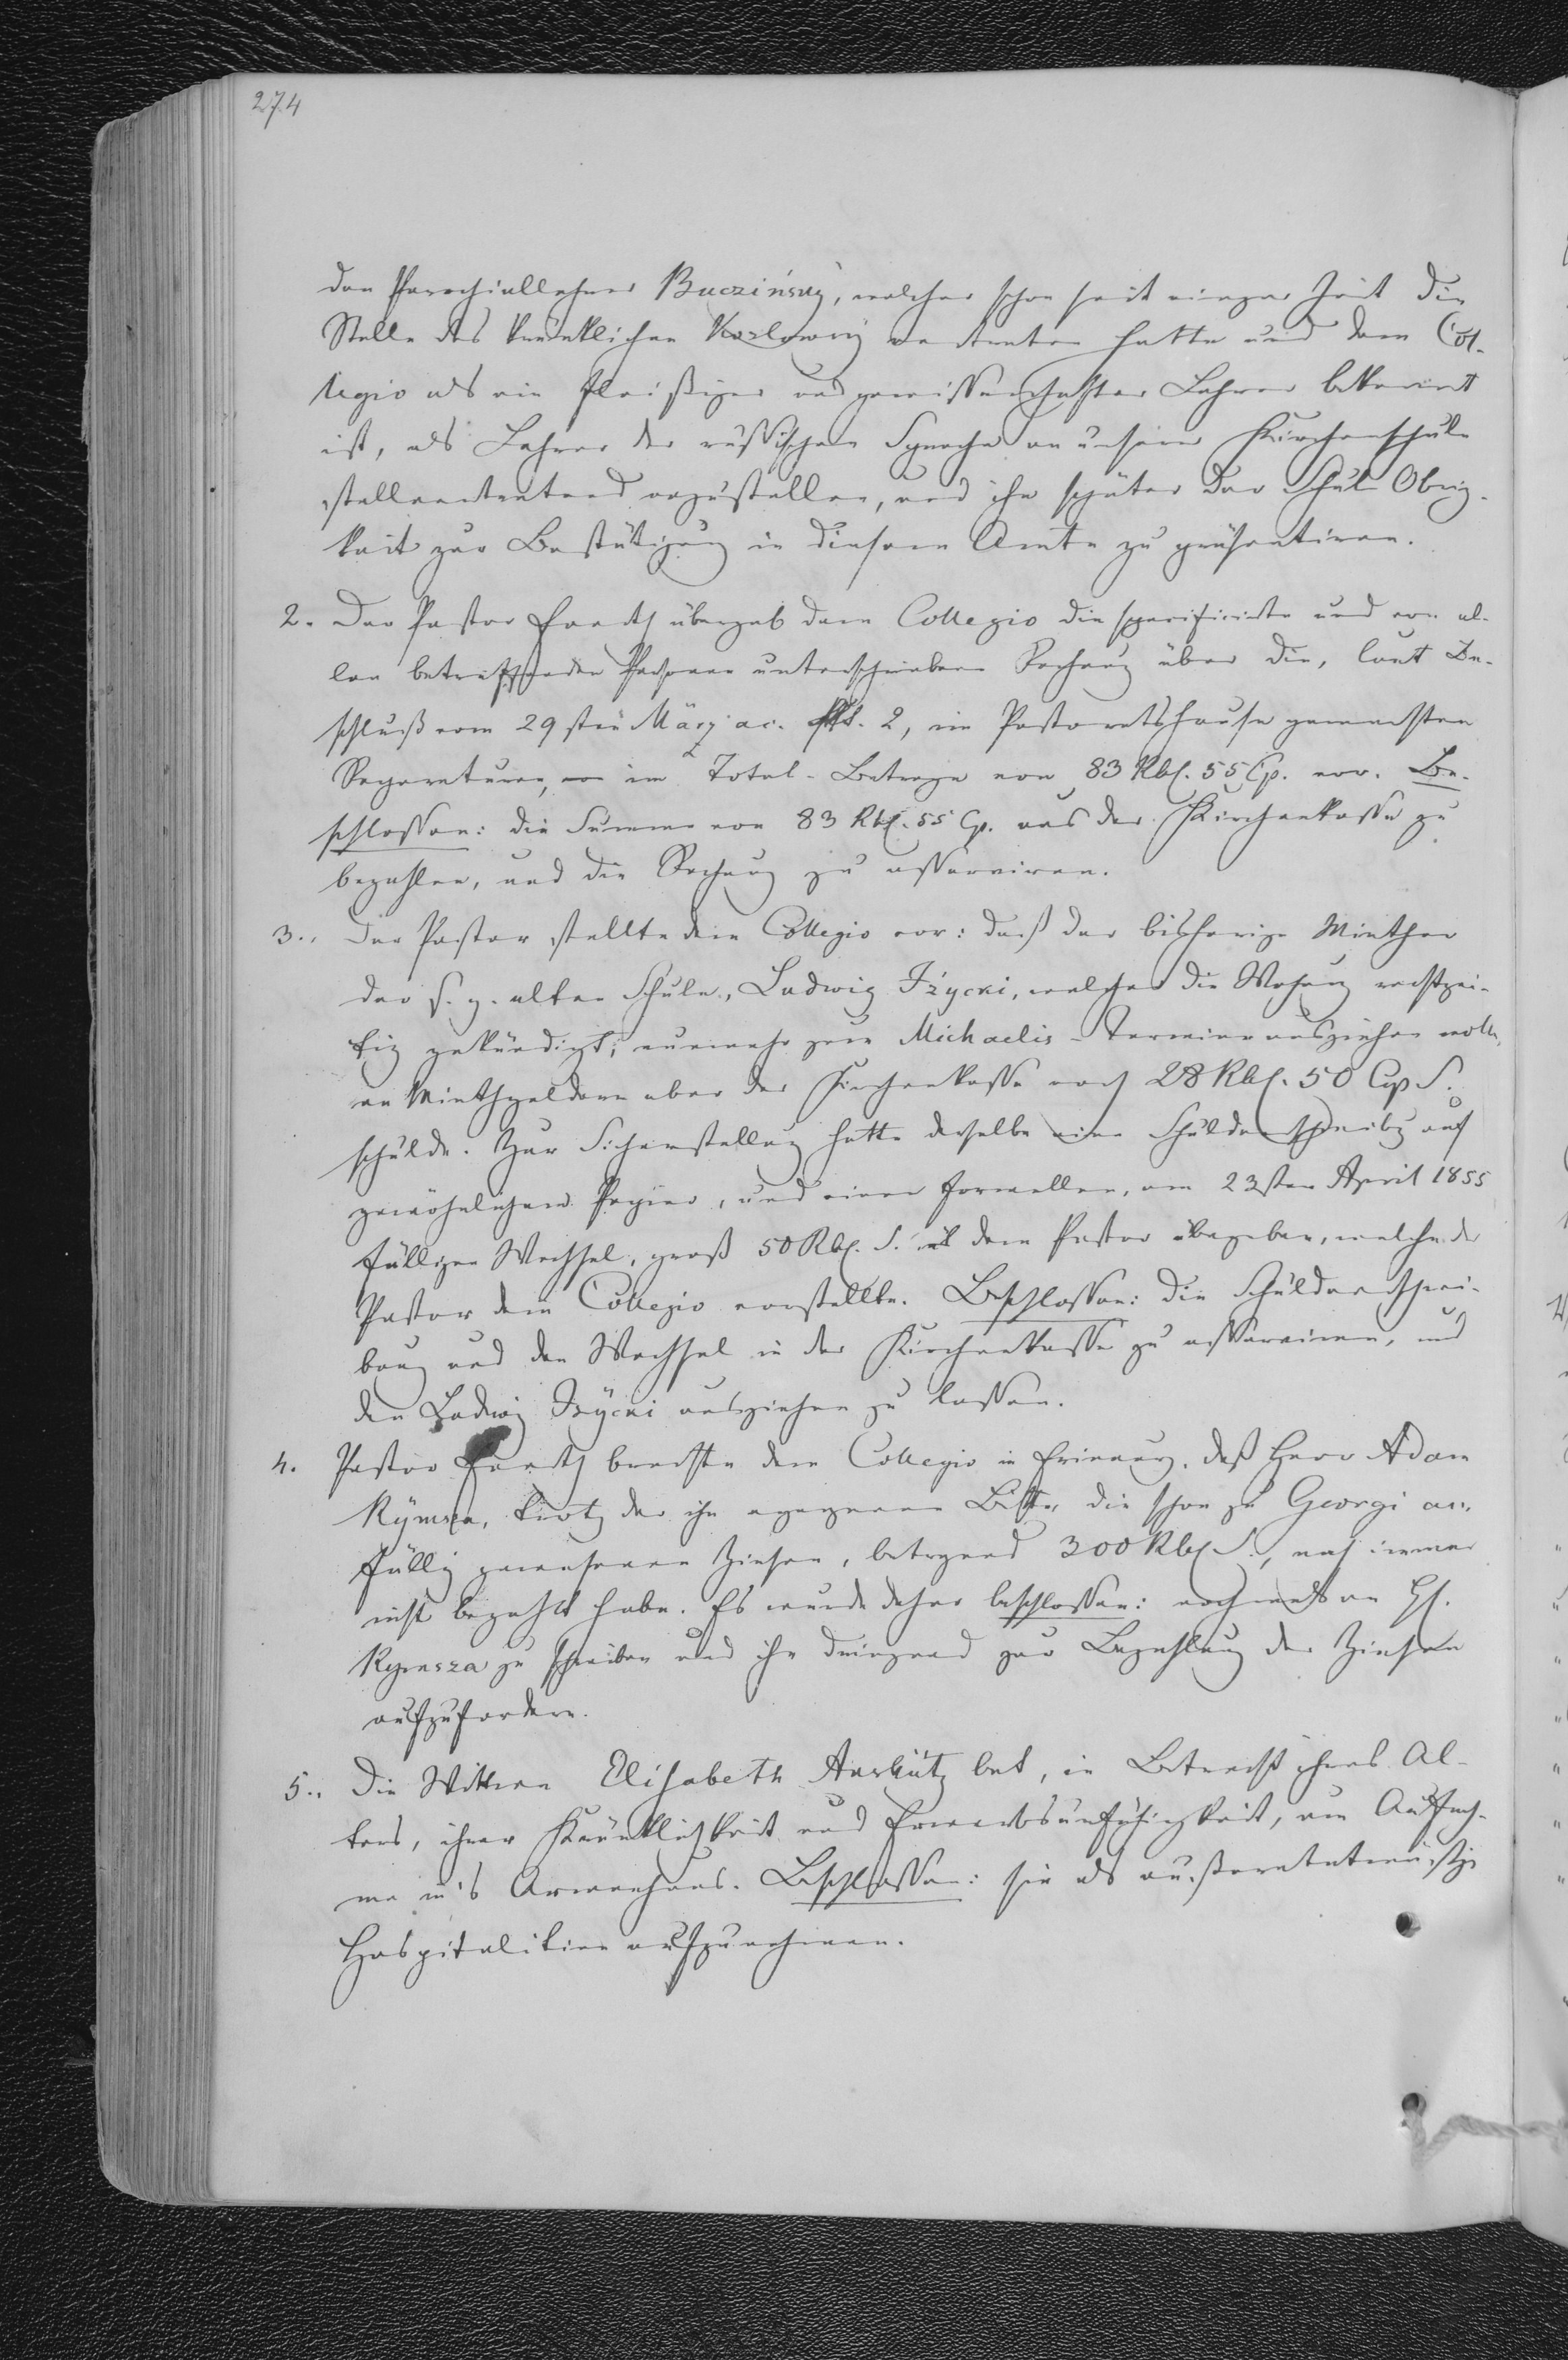 274
den Parochiallehrer Buczinsky, welcher schon seit einiger Zeit die
Stelle des kränklichen Kozlowsky vertreten hatte und dem Col-
legio als ein fleißiger und gewissenhafter Lehrer bekannt
ist, als Lehrer der russischen Sprache an unserer Kirchenschule
stellvertretend anzustellen, und ihn später der Schul-Obrig-
keit zur Bestätigung in diesem Amte zu präsentiren.
2. Der Pastor übergab dem Collegio die specificirte und von al-
len betreffenden Personen unterschriebene Rechnung über die, laut Be-
schluß vom 29sten März ac. Pkt. 2, im Pastoratshause gemachten
Reparaturen, im Total-Betrage von 83 Rbl. 55 Cp. vor. Be-
schlossen: die Summe von 83 Rbl. 55 Cp. aus der Kirchenkasse zu
bezahlen, und die Rechnung zu asserviren.
3. Der Pastor stellte dem Collegio vor: daß der bisherige Miether
der s. g. alten Schule, Ludwig Iżycki, welcher die Wohnung rechtzei-
tig gekündigt, nunmehr zum Michaelis-Termine ausziehen wolle,
an Miethgeldern aber der Kirchenkasse noch 28 Rbl. 50 Cop S.
schulde. Zur Sicherstellung hatte derselbe eine Schuldverschreibg auf
gewöhnlichem Papier, und einen formellen, am 23sten April 1855
fälligen Wechsel, groß 50 Rbl. S. dem Pastor übergeben, welche der
Pastor dem Collegio vorstellte. Beschlossen: die Schuldverschrei-
bung und den Wechsel in der Kirchenkasse zu asserviren, und
den Ludwig Izycki ausziehen zu lassen.
4. Pastor brachte dem Collegio in Erinnerung, daß Herr Adam
Rymsza, trotz der ihm ergangenen Bitte, die schon zu Georgi ac.
fällig gewesenen Zinsen, betragend 300 Rbl S., noch immer
nicht bezahlt habe. Es wurde daher beschlossen: nochmals an H.
Rymsza zu schreiben und ihn dringend zur Bezahlung der Zinsen
aufzufordern.
5. Die Wittwe Elisabeth bat, in Betracht ihres Al-
ters, ihrer Kränklichkeit und Erwerbsunfähigkeit, um Aufnah-
me in's Armenhaus. Beschlossen: sie als außeretatmäßige
Hospitalitin aufzunehmen.